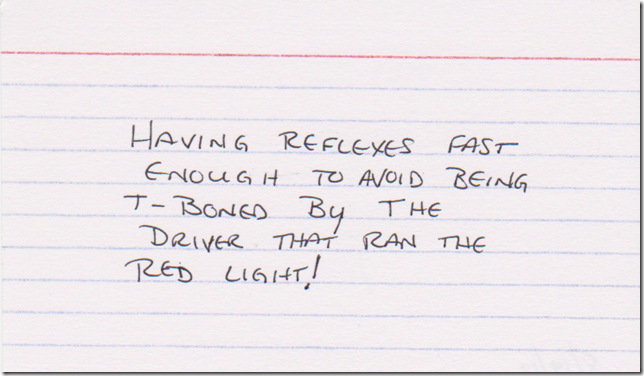 HAVING REFLEXES FAST
ENOUGH TO AVOID BEING
T-BONED BY THE
DRIVER THAT RAN THE
RED LIGHT!